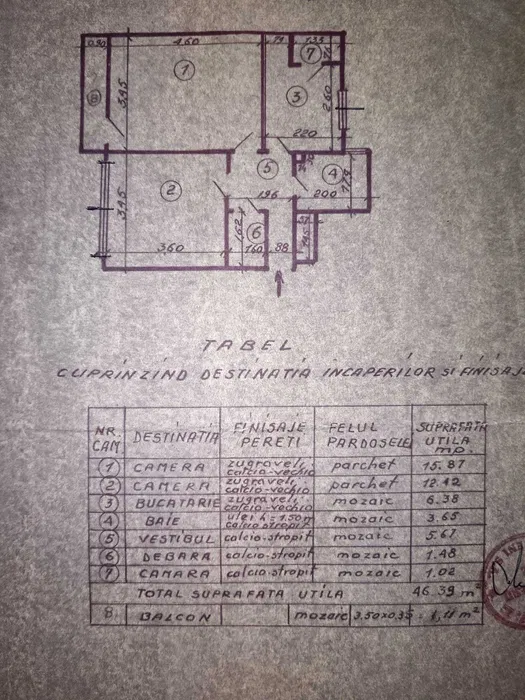 0.90 4.60 79 135
7
1
3
8 3.45 2.60
220
5
4
2
196 200
3.45
1.62 6
3.60 160 88
TABEL
CUPRINZIND DESTINATIA INCAPERILOR SI FINISAJ
NR. CAM DESTINATIA FINISAJE PERETI FELUL PARDOSELEI SUPRAFATA UTILA mp.
1 CAMERA zugraveli, calcio-vechio parchet 15.87
2 CAMERA zugraveli, calcio-vechio parchet 12.42
3 BUCATARIE zugraveli, calcio-vechio mozaic 6.38
4 BAIE ulei h=1.50m calcio stropit mozaic 3.65
5 VESTIBUL calcio-stropit mozaic 5.67
6 DEBARA calcio-stropit mozaic 1.48
7 CAMARA calcio-stropit mozaic 1.02
TOTAL SUPRAFATA UTILA 46.39 m²
8 BALCON mozaic 3.50x0.35 = 1,11 m²